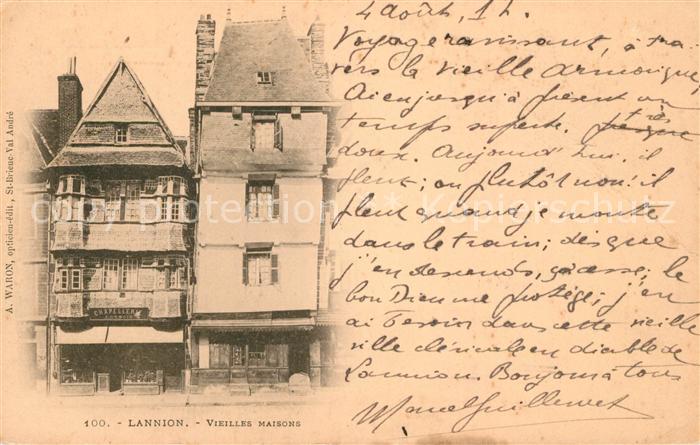 4 août, 1 h.
Voyage ravissant, à tra-
vers la vieille Armorique,
Ai eu jusqu'à présent un
temps superbe. très
doux. Aujourd'hui, il
pleut; ou plutôt non: il
pleut quand je monte
dans le train; dès que
j'en descends, ça cesse; le
bon Dieu me protège; j'en
ai besoin dans cette vieille
ville cléricale en diable de
Lannion. Bonjour à tous
Marcel Guillemet
A. WARON, opticien-édit, St-Brieuc-Val André
CHAPELLERIE
100. - LANNION. - VIEILLES MAISONS
copyright protection & Kopierschutz